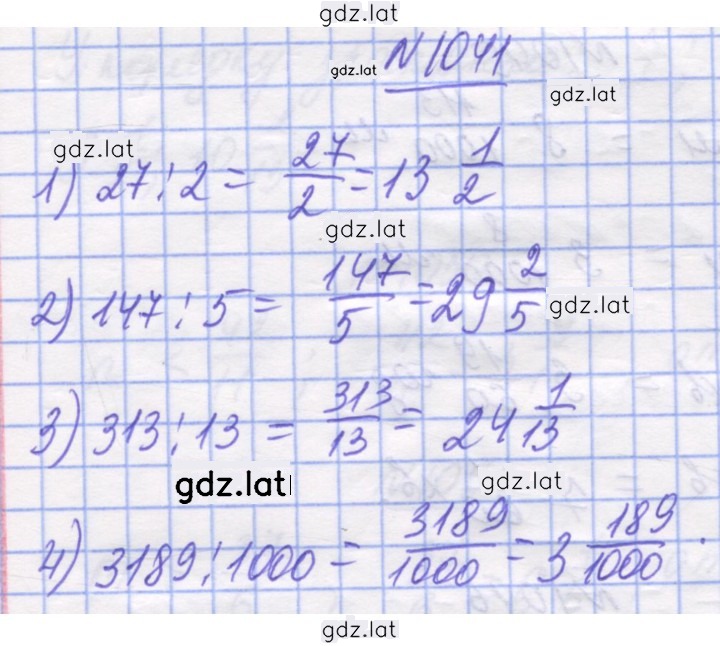 gdz.lat
N 1041
gdz.lat
gdz.lat
gdz.lat
1) 27 : 2 = 27/2 = 13 1/2
gdz.lat
2) 147 : 5 = 147/5 = 29 2/5
gdz.lat
3) 313 : 13 = 313/13 = 24 1/13
gdz.lat
gdz.lat
4) 3189 : 1000 = 3189/1000 = 3 189/1000 .
gdz.lat